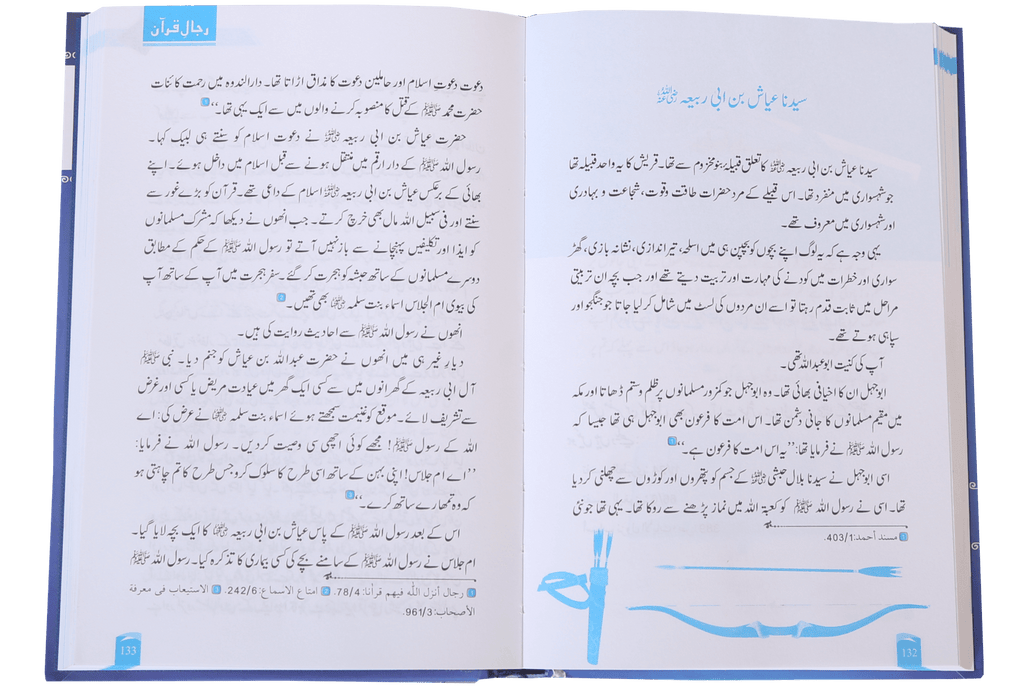 سیدنا عیاش بن ابی ربیعہ رضی اللہ عنہ
سیدنا عیاش بن ابی ربیعہ رضی اللہ عنہ کا تعلق قبیلہ بنو مخزوم سے تھا۔ قریش کا یہ واحد قبیلہ تھا
جو شہسواری میں منفرد تھا۔ اس قبیلے کے مرد حضرات طاقت و قوت، شجاعت و بہادری
اور شہسواری میں معروف تھے۔
یہی وجہ ہے کہ یہ لوگ اپنے بچوں کو بچپن ہی میں اسلحہ، تیر اندازی، نشانہ بازی، گھڑ
سواری اور خطرات میں کودنے کی مہارت اور تربیت دیتے تھے اور جب بچہ ان تربیتی
مراحل میں ثابت قدم رہتا تو اسے ان مردوں کی لسٹ میں شامل کر لیا جاتا جو جنگجو اور
سپاہی ہوتے تھے۔
آپ کی کنیت ابو عبداللہ تھی۔
ابوجہل ان کا اخیافی بھائی تھا۔ وہ ابوجہل جو کمزور مسلمانوں پر ظلم و ستم ڈھاتا اور مکہ
میں مقیم مسلمانوں کا جانی دشمن تھا۔ اس امت کا فرعون بھی ابوجہل ہی تھا جیسا کہ
رسول اللہ ﷺ نے فرمایا تھا: ’’یہ اس امت کا فرعون ہے۔‘‘ 1
اسی ابوجہل نے سیدنا بلال حبشی رضی اللہ عنہ کے جسم کو پتھروں اور کوڑوں سے چھلنی کر دیا
تھا۔ اسی نے رسول اللہ ﷺ کو کعبۃ اللہ میں نماز پڑھنے سے روکا تھا۔ یہی تھا جو نئی
1 مسند أحمد: 403/1.
132
رجالِ قرآن
دعوت دعوتِ اسلام اور حاملین دعوت کا مذاق اڑاتا تھا۔ دارالندوہ میں رحمت کائنات
حضرت محمد ﷺ کے قتل کا منصوبہ کرنے والوں میں سے ایک یہی تھا۔‘‘ 1
حضرت عیاش بن ابی ربیعہ رضی اللہ عنہ نے دعوت اسلام کو سنتے ہی لبیک کہا۔
رسول اللہ ﷺ کے دار ارقم میں منتقل ہونے سے قبل اسلام میں داخل ہوئے۔ اپنے
بھائی کے برعکس عیاش بن ابی ربیعہ رضی اللہ عنہ اسلام کے داعی تھے۔ قرآن کو بڑے غور سے
سنتے اور فی سبیل اللہ مال بھی خرچ کرتے۔ جب انھوں نے دیکھا کہ مشرک مسلمانوں
کو ایذا اور تکلیفیں پہنچانے سے باز نہیں آتے تو رسول اللہ ﷺ کے حکم کے مطابق
دوسرے مسلمانوں کے ساتھ حبشہ کو ہجرت کر گئے۔ سفر ہجرت میں آپ کے ساتھ آپ
کی بیوی ام الجلاس اسماء بنت سلمہ رضی اللہ عنہا بھی تھیں۔ 2
انھوں نے رسول اللہ ﷺ سے احادیث روایت کی ہیں۔
دیارِ غیر ہی میں انھوں نے حضرت عبداللہ بن عیاش کو جنم دیا۔ نبی ﷺ
آل ابی ربیعہ کے گھرانوں میں سے کسی ایک گھر میں عیادت مریض یا کسی اور غرض
سے تشریف لائے۔ موقع کو غنیمت سمجھتے ہوئے اسماء بنت سلمہ رضی اللہ عنہا نے عرض کی: اے
اللہ کے رسول ﷺ! مجھے کوئی اچھی سی وصیت کر دیں۔ رسول اللہ نے فرمایا:
’’اے ام جلاس! اپنی بہن کے ساتھ اسی طرح کا سلوک کرو جس طرح کا تم چاہتی ہو
کہ وہ تمھارے ساتھ کرے۔‘‘ 3
اس کے بعد رسول اللہ ﷺ کے پاس عیاش بن ابی ربیعہ رضی اللہ عنہ کا ایک بچہ لایا گیا۔
ام جلاس نے رسول اللہ ﷺ کے سامنے بچے کی کسی بیماری کا تذکرہ کیا۔ رسول اللہ ﷺ
1 رجال أنزل اللّٰه فيهم قرانا: 78/4. 2 امتاع الاسماع: 242/6. 3 الاستيعاب في معرفة
الأصحاب: 961/3.
133